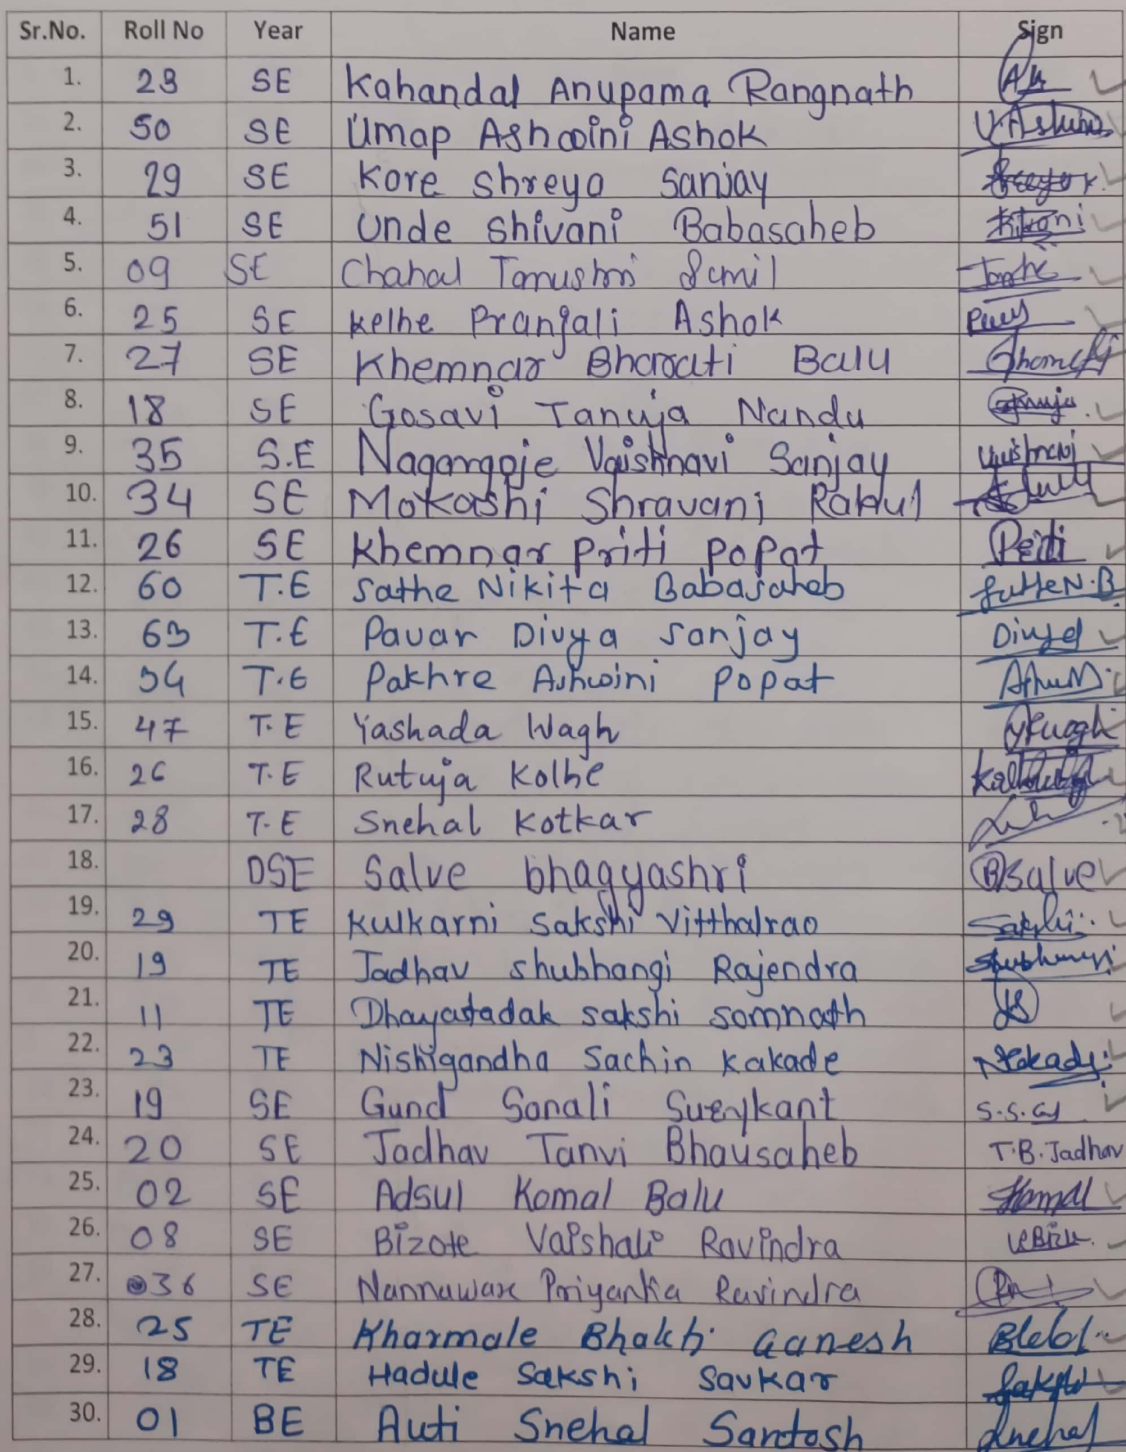 Sr.No. Roll No Year Name Sign
1. 23 SE Kahandal Anupama Rangnath
2. 50 SE Umap Ashwini Ashok U.Ashwini
3. 29 SE Kore Shreya Sanjay
4. 51 SE Unde Shivani Babasaheb
5. 09 SE Chahal Tanushri
6. 25 SE Kelhe Pranjali Ashok
7. 27 SE Khemnar Bharati Balu
8. 18 SE Gosavi Tanuja Nandu
9. 35 S.E Nagargoje Vaishnavi Sanjay Vaishnavi
10. 34 SE Mokashi Shravani Rahul
11. 26 SE Khemnar Priti Popat Priti
12. 60 T.E Sathe Nikita Babasaheb Sathe N.B
13. 63 T.E Pavar Divya Sanjay Divya
14. 54 T.E Pakhre Ashwini Popat
15. 47 T.E Yashada Wagh
16. 26 T.E Rutuja Kolhe
17. 28 T.E Snehal Kotkar
18. DSE Salve bhagyashri Bsalve
19. 29 TE Kulkarni Sakshi Vitthalrao Sakshi
20. 19 TE Jadhav Shubhangi Rajendra Shubhangi
21. 11 TE Dhayatadak sakshi somnath
22. 23 TE Nishigandha Sachin Kakade
23. 19 SE Gund Sonali Sueykant
24. 20 SE Jadhav Tanvi Bhausaheb T.B.Jadhav
25. 02 SE Adsul Komal Balu Komal
26. 08 SE Bizote Vaishali Ravindra
27. 36 SE Nannaware Priyanka Ravindra
28. 25 TE Kharmale Bhakti Ganesh
29. 18 TE Hadule Sakshi Savkar Sakshi
30. 01 BE Auti Snehal Santosh Snehal